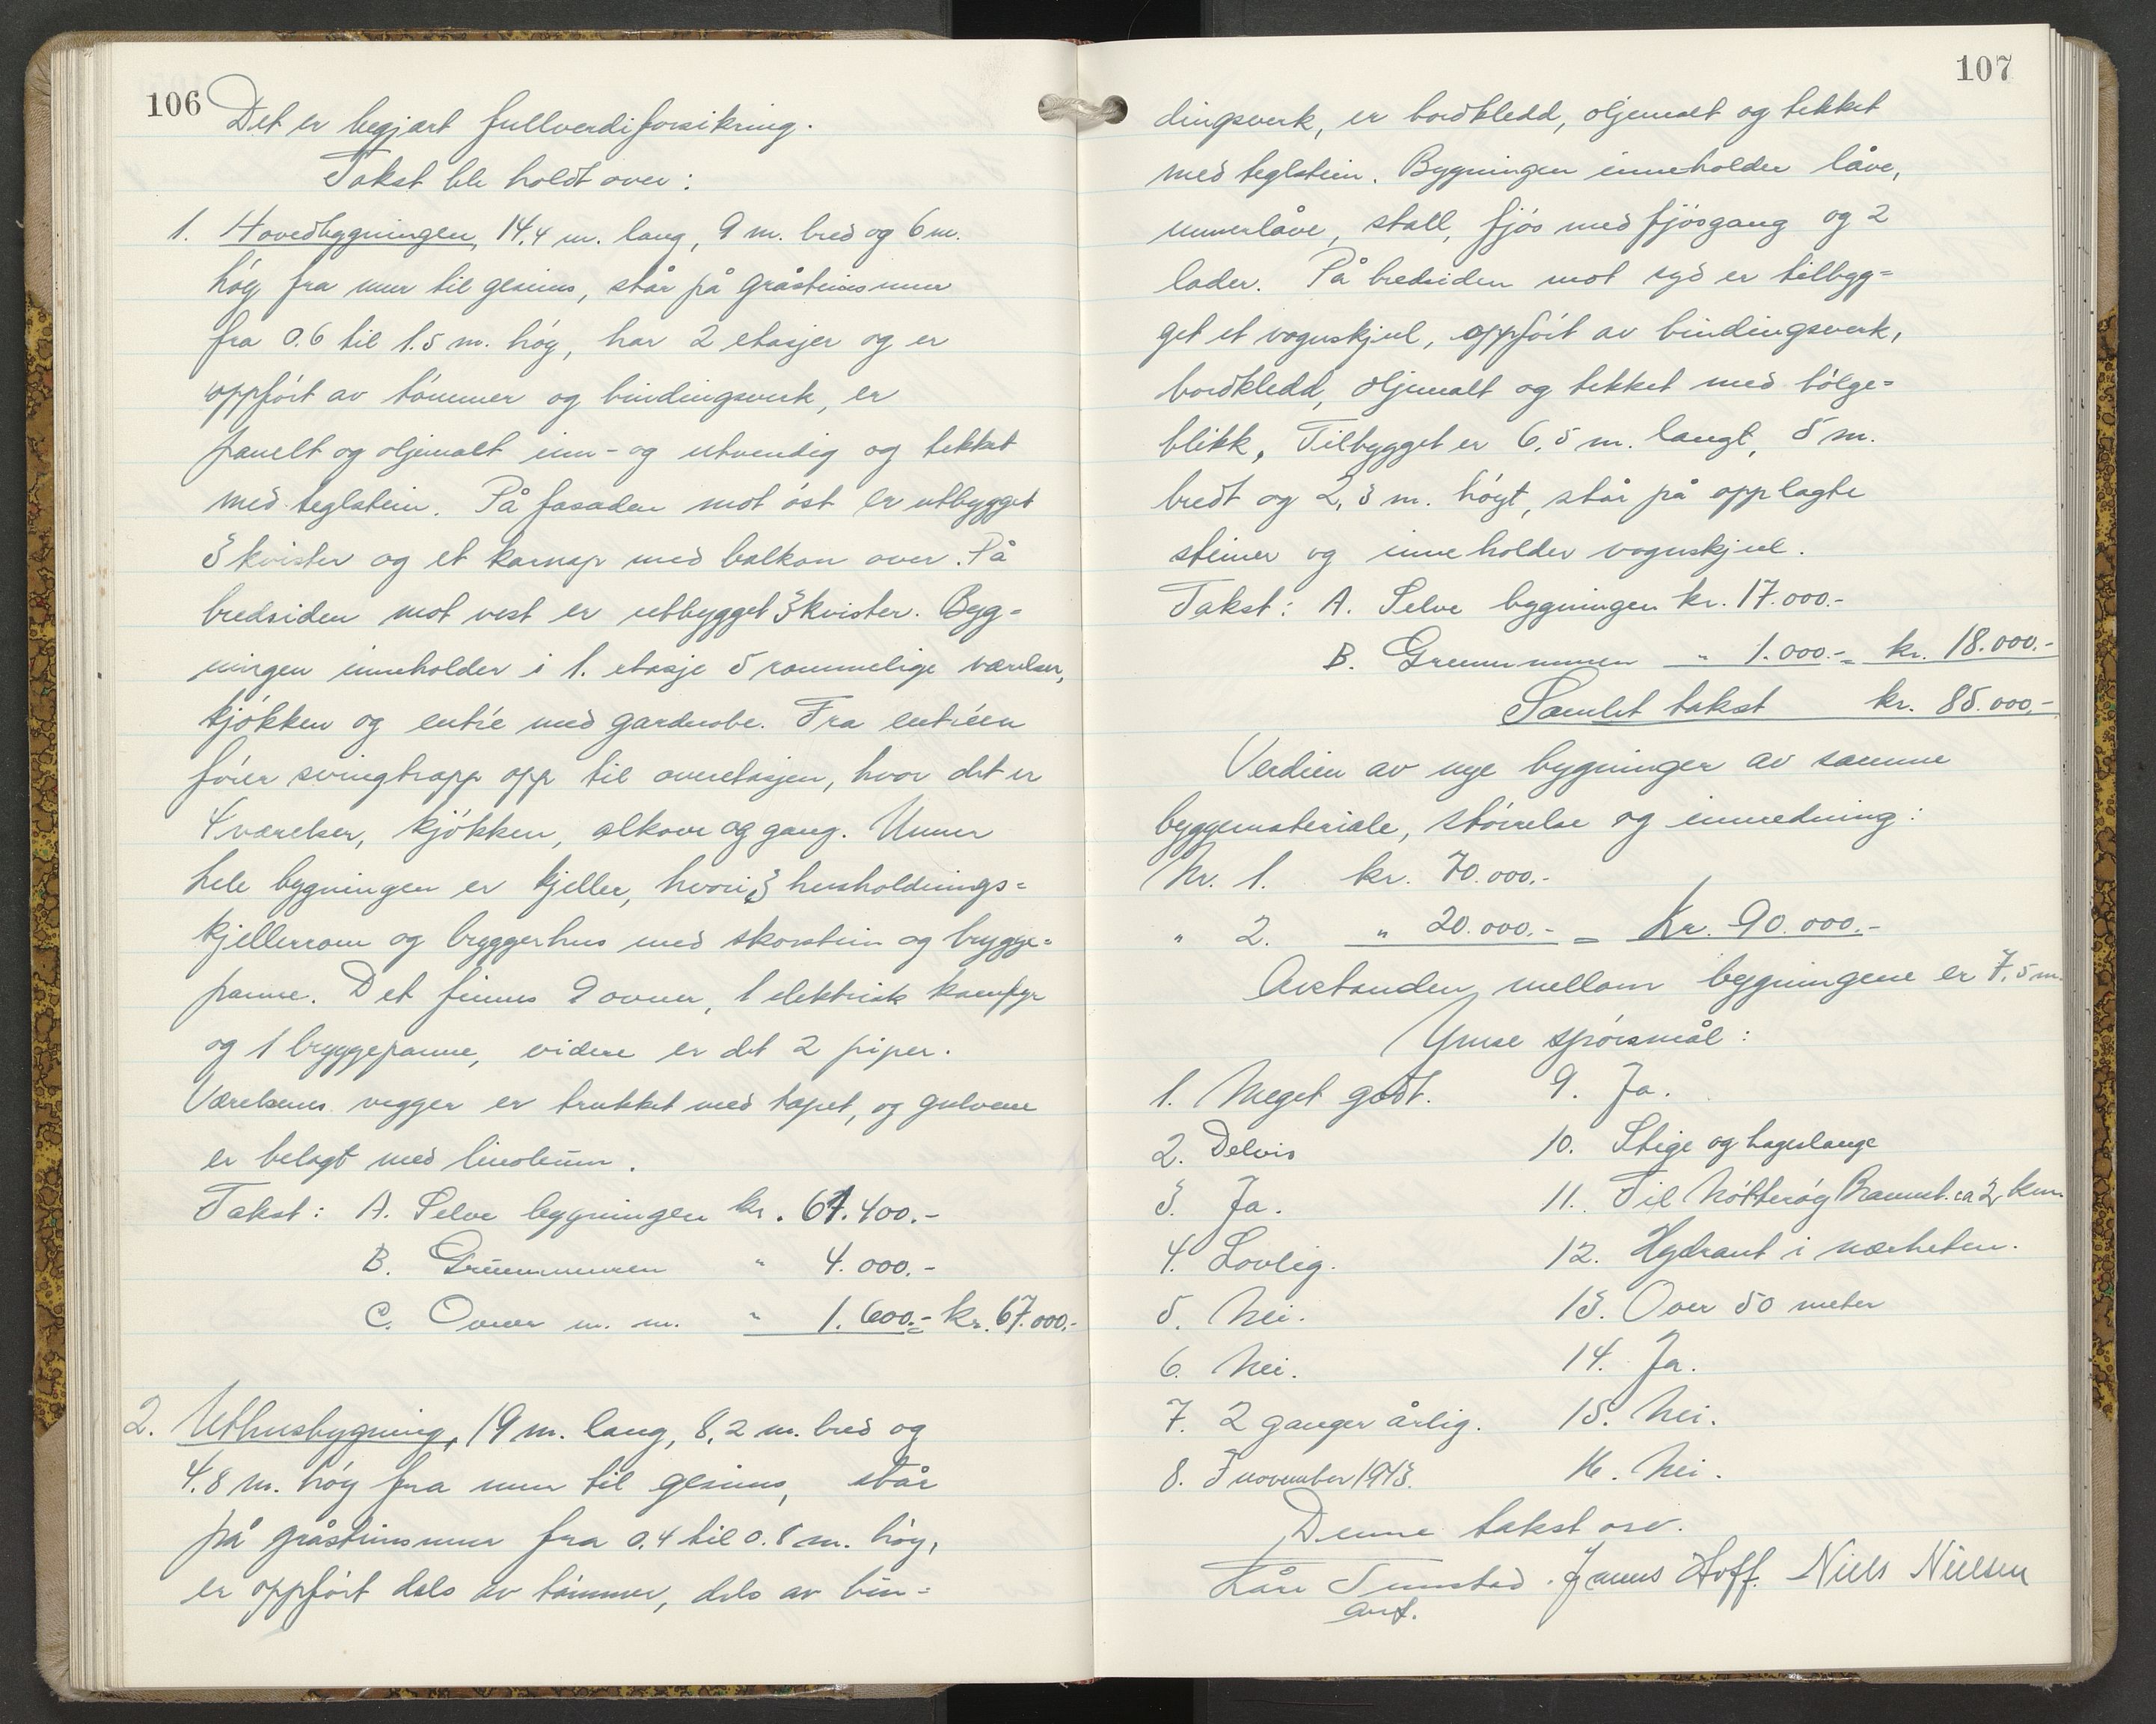 106
Det er begjært fullverdiforsikring.
Takst ble holdt over:
1. Hovedbygningen, 14,4 m. lang, 9 m. bred og 6 m.
høg fra mur til gesims, står på gråsteinsmur
fra 0.6 til 1.5 m. høg, har 2 etasjer og er
oppført av tømmer og bindingsverk, er
panelt og oljemalt inn- og utvendig og tekket
med teglstein. På fasaden mot øst er utbygget
3 kvister og et karnap med balkon over. På
bredsiden mot vest er utbygget 3 kvister. Byg=
ningen inneholder i 1. etasje 5 rommelige værelser,
kjøkken og entré med garderobe. Fra entréen
fører svingtrapp opp til overetasjen, hvor det er
4 værelser, kjøkken, alkove og gang. Unner
hele bygningen er kjeller, hvori 3 husholdnings=
kjellerrom og bryggerhus med skorstein og brygge=
panne. Det finnes 9 ovner, 1 elektrisk komfyr
og 1 bryggepanne, videre er det 2 piper.
Værelsenes vegger er trukket med tapet, og gulvene
er belagt med linoleum.
Takst: A. Selve bygningen kr. 61.400.-
B. Grunnmuren " 4.000.-
C. Ovner m. m. " 1.600.- = kr. 67.000.-
2. Uthusbygning, 19 m. lang, 8,2 m. bred og
4.8 m. høg fra mur til gesims, står
på gråsteinsmur fra 0.4 til 0.8 m. høg,
er oppført dels av tømmer, dels av bin=
107
dingsverk, er bordkledd, oljemalt og tekket
med teglstein. Bygningen inneholder låve,
unnerlåve, stall, fjøs med fjøsgang og 2
lader. På bredsiden mot syd er tilbyg=
get et vognskjul, oppført av bindingsverk,
bordkledd, oljemalt og tekket med bølge=
blikk. Tilbygget er 6,5 m. langt, 5 m.
bredt og 2,3 m. høgt, står på opplagte
steiner og inneholder vognskjul.
Takst: A. Selve bygningen kr. 17.000.-
B. Grunnmuren " 1.000.- = kr. 18.000.-
Samlet takst kr. 85.000.-
Verdien av nye bygninger av samme
byggemateriale, størrelse og innredning:
Nr. 1. kr. 70.000.-
" 2. " 20.000.- = Kr. 90.000.-
Avstanden mellom bygningene er 7,5 m.
Ymse spørsmål:
1. Meget godt. 9. Ja.
2. Delvis 10. Stige og hageslange
3. Ja. 11. Til Nøtterøy Brannst. ca 2 km
4. Lovlig. 12. Hydrant i nærheten.
5. Nei. 13. Over 50 meter
6. Nei. 14. Ja.
7. 2 ganger årlig. 15. Nei.
8. I november 1943. 16. Nei.
Denne takst osv.
Kåre Tunstad. Hoff. Niels Nielsen